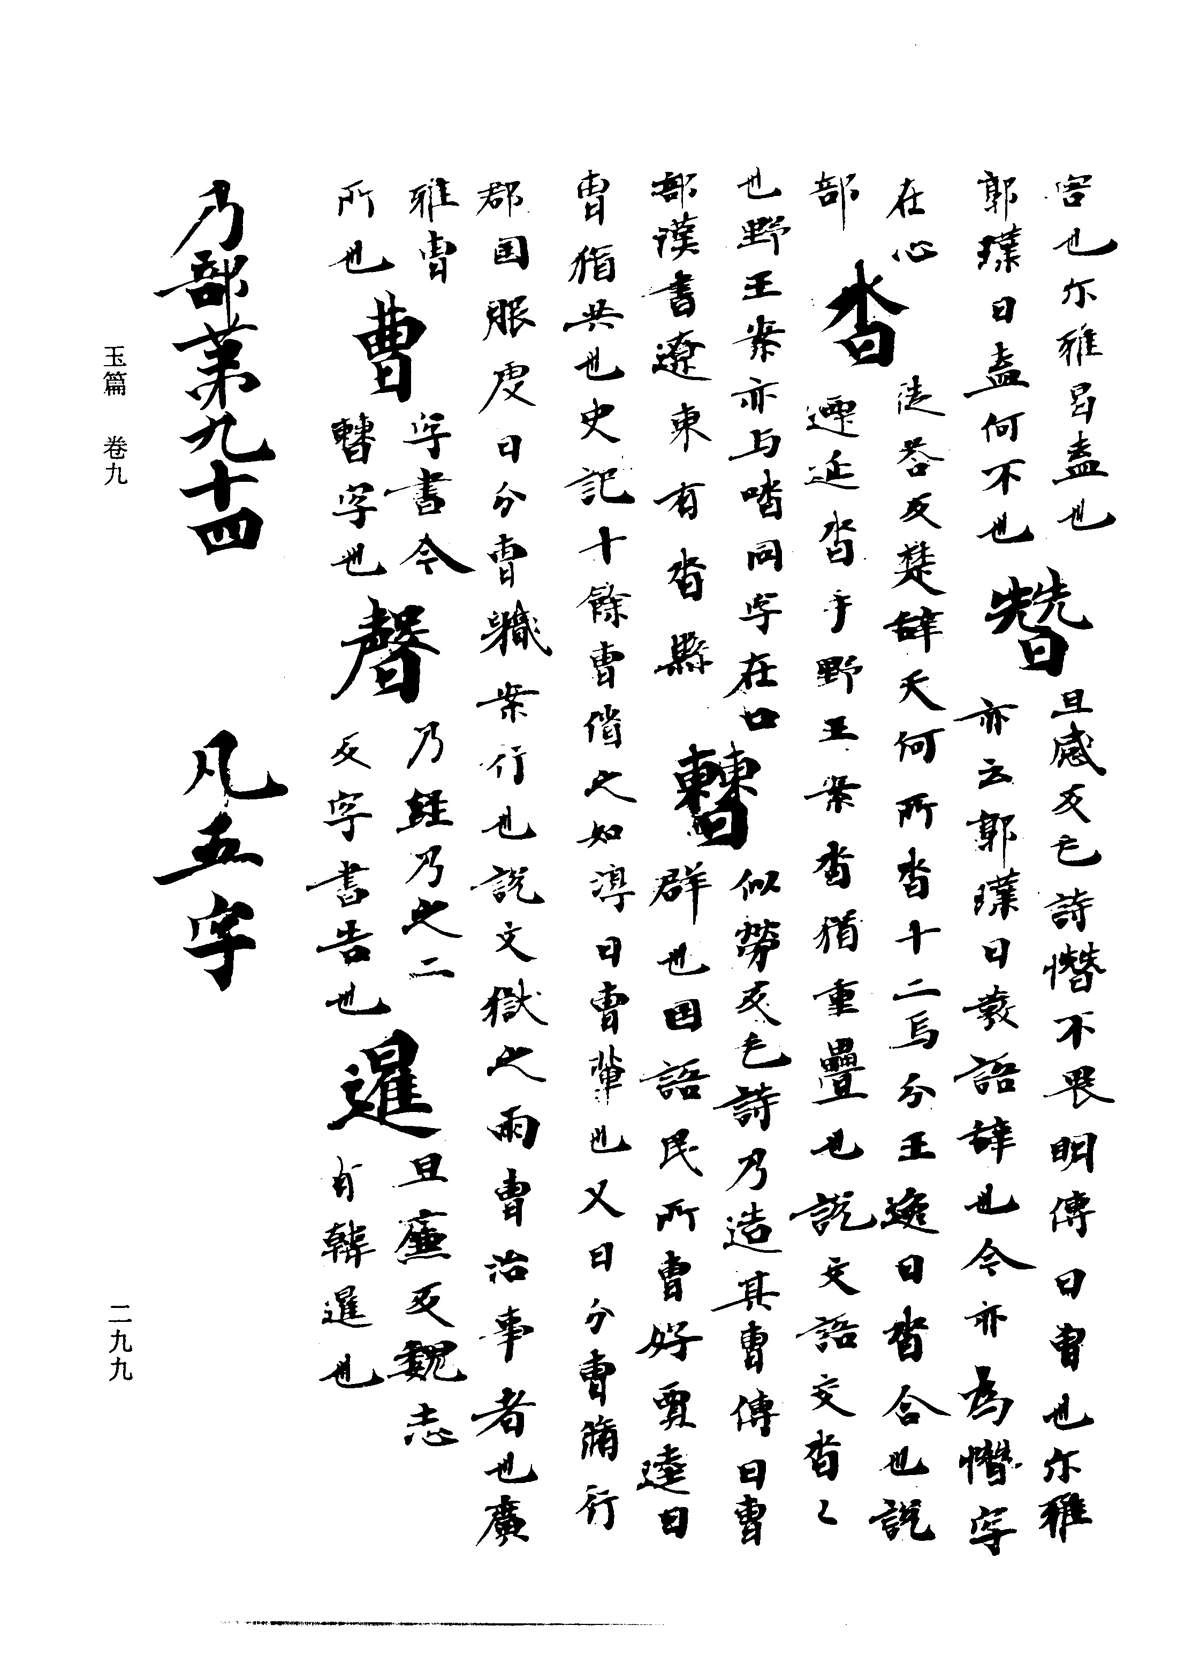 害也尓雅曷盍也
郭璞曰盍何不也
朁
旦感反毛詩憯不畏明傳曰曹也尓雅
亦云郭璞曰發語辞也今亦為憯字
在心
部
沓
徒荅反楚辞天何所沓十二焉分王逸曰沓合也說
遝迋沓手野王案沓猶重疊也說文語交沓〻
也野王案亦与喈同字在口
部漢書遼東有沓縣
㯥
似勞反毛詩乃造其曹傳曰曹
群也国語民所曹好賈逵曰
曹猶共也史記十餘曹偹之如淳曰曹輩也又曰分曹循行
郡国服虔曰分曹職案行也說文獄之兩曹治事者也廣
雅曹
所也
曹
字書今
㯥字也
㫸
乃経乃之二
反字書告也
暹
旦廉反魏志
有韓暹也
乃部苐九十四
凡五字
玉篇 卷九
二九九